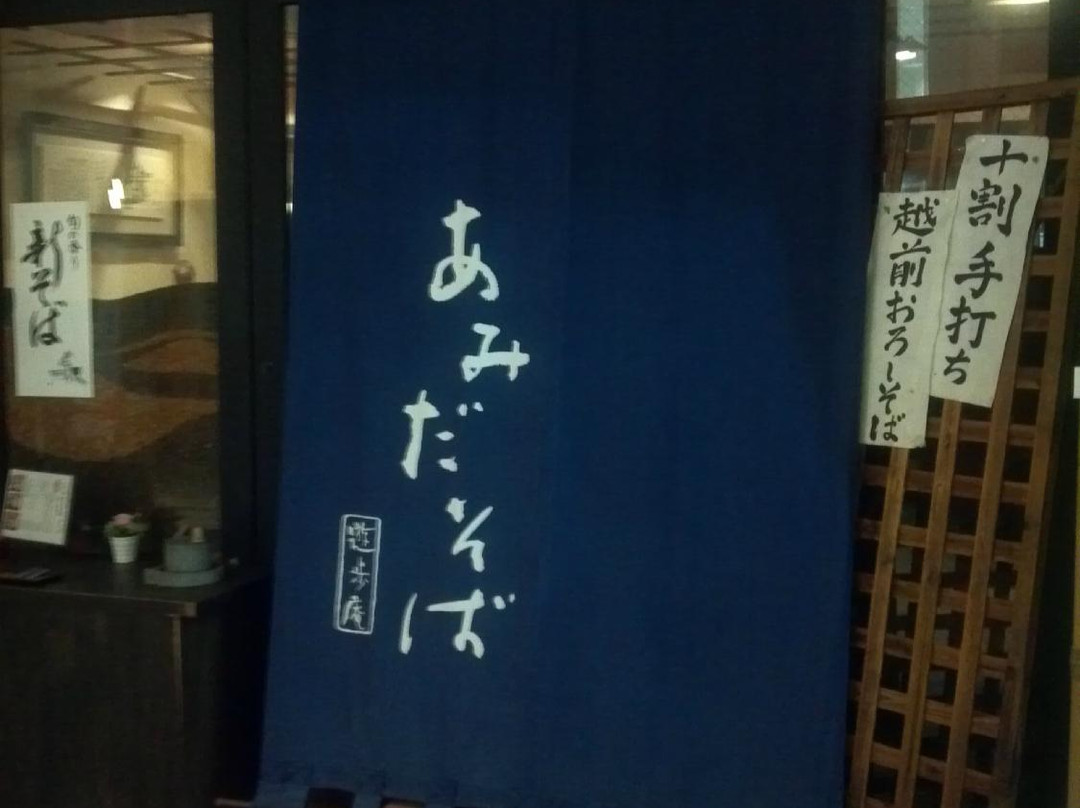 十割手打ち
越前おろしそば
あみだそば
遊歩庵
新そば